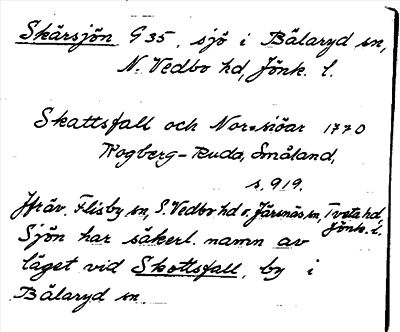 Skärsjön G 35, sjö i Bälaryd sn,
N. Vedbo hd, Jönk. l.
Skattsfall och Norr siöar 1770
Rogberg-Ruda, Småland,
s. 919.
Jfr äv. Flisby sn, S. Vedbo hd o. Järsnäs sn, Tveta hd,
Jönk. l.
Sjön har säkerl. namn av
läget vid Skottsfall, by i
Bälaryd sn.